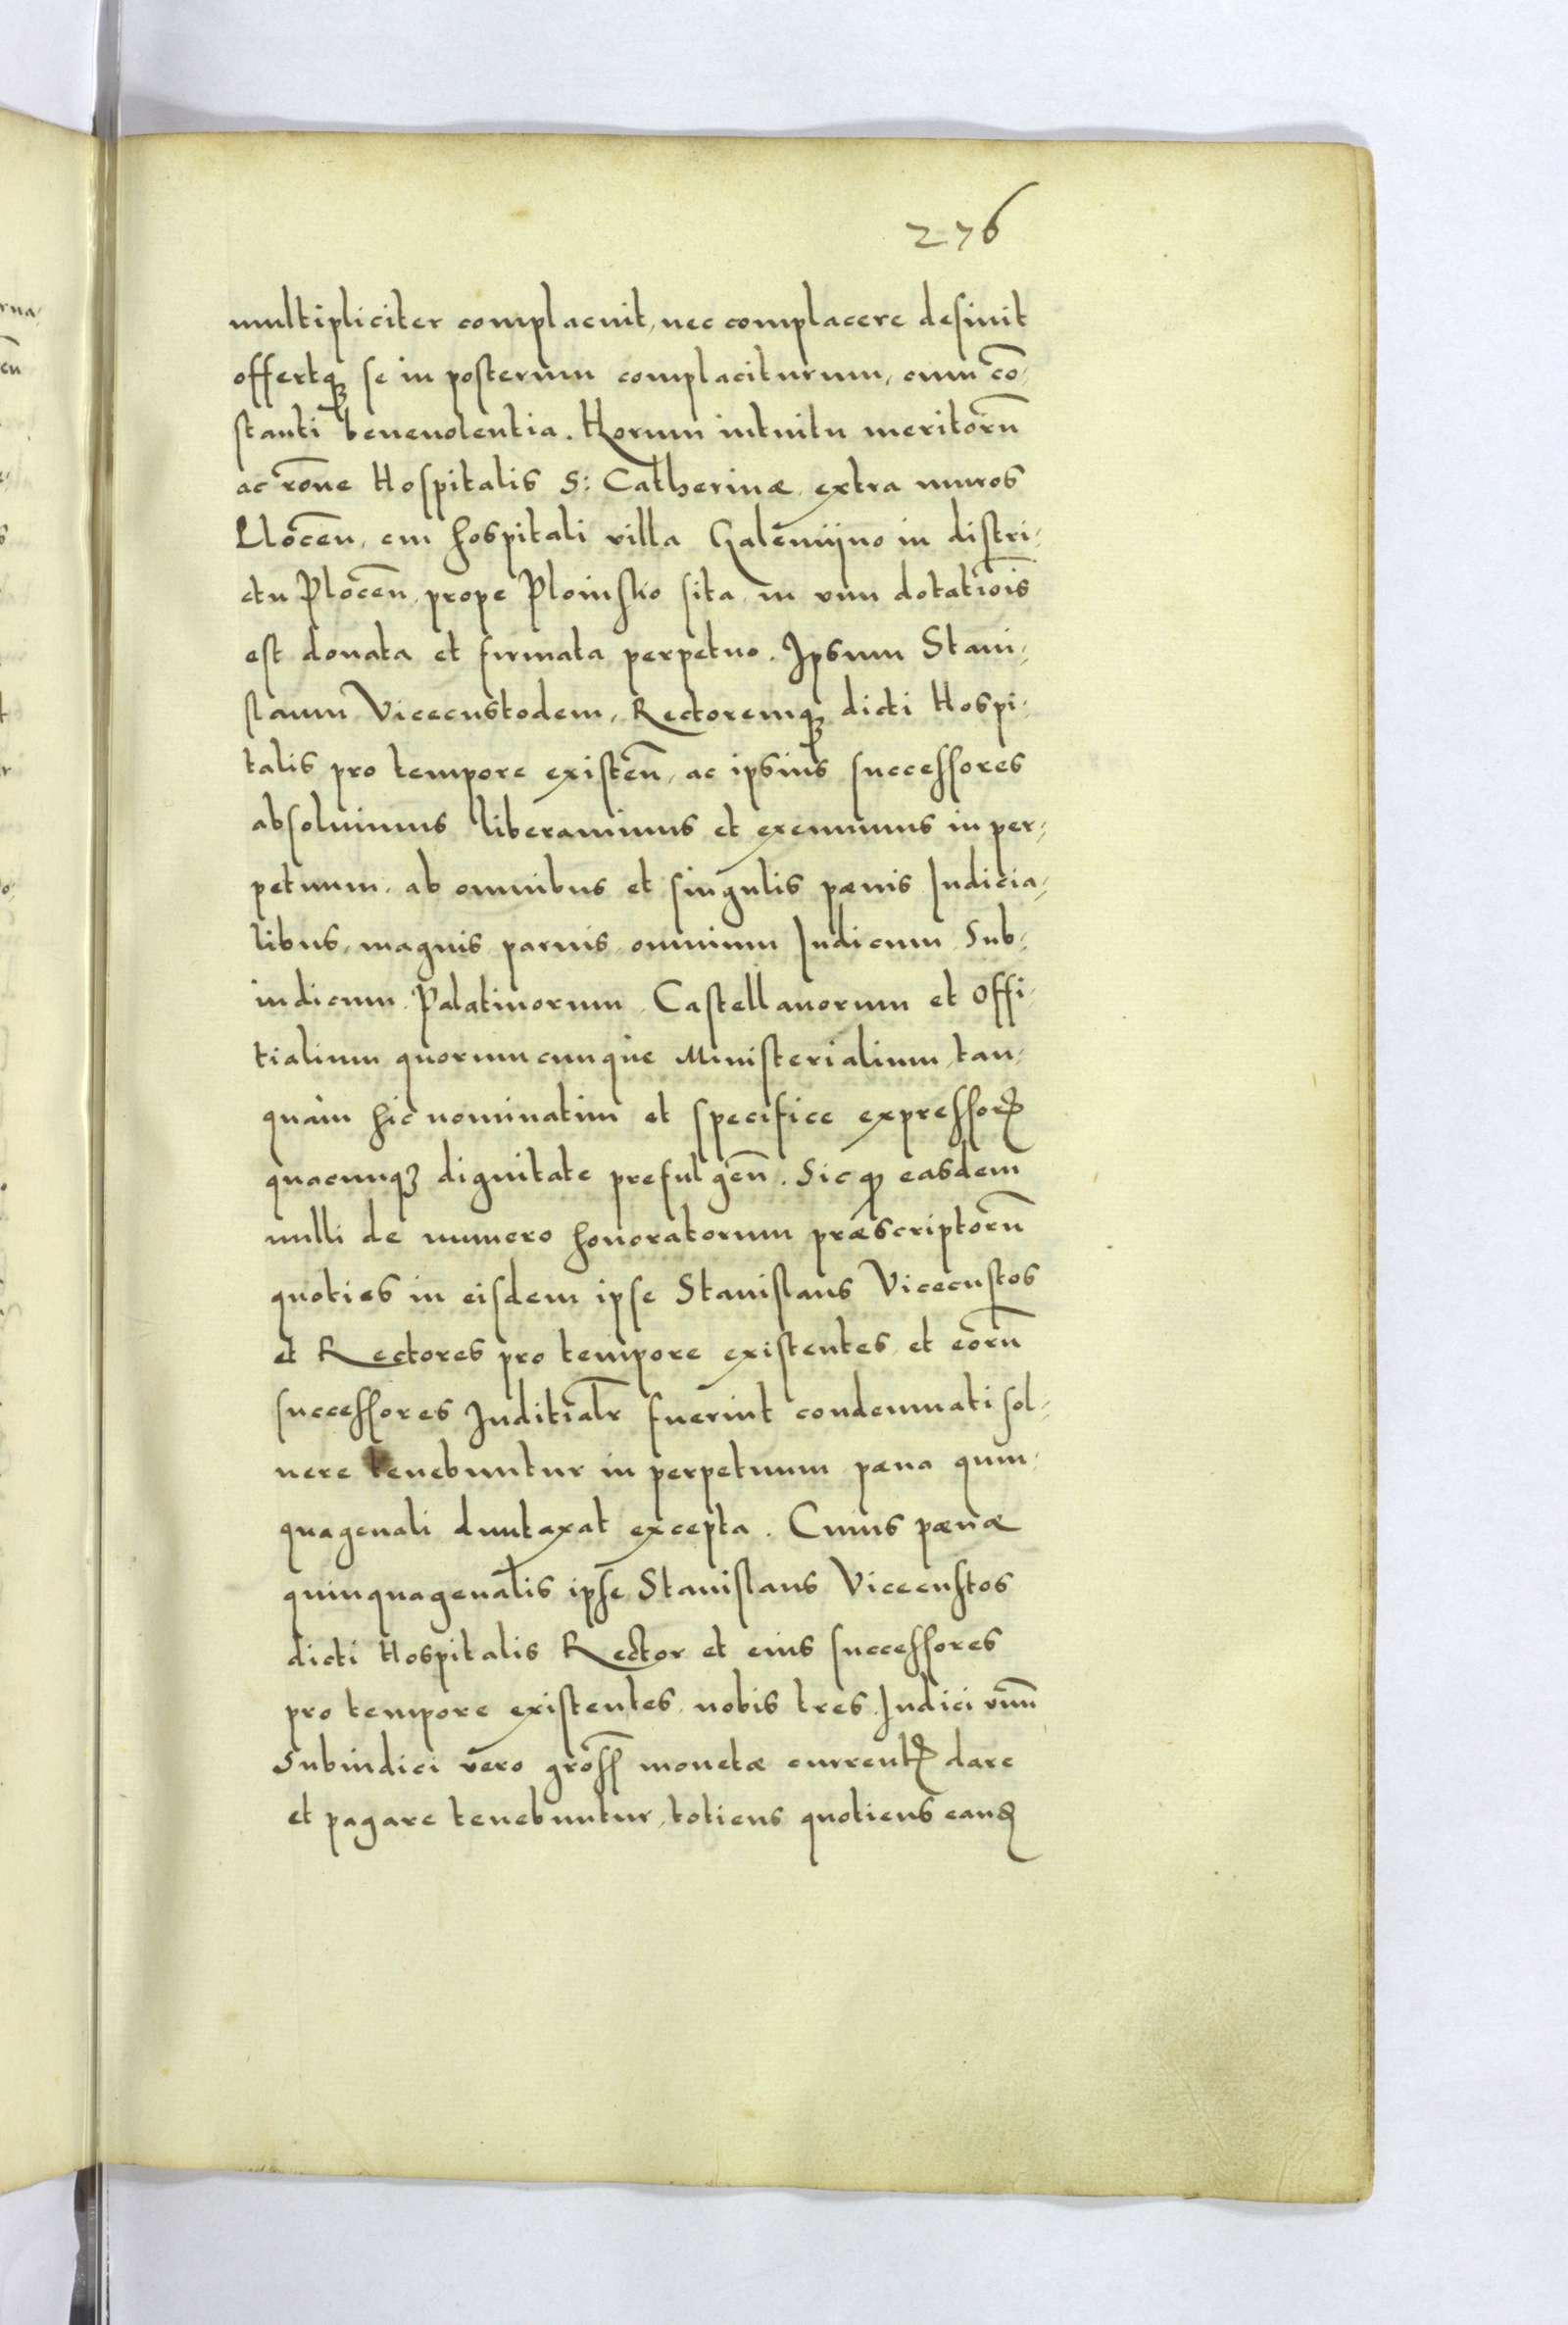 276
multipliciter complacuit, nec complacere desinit
offertq se in posterum complaciturum, cum cō-
stanti beneuolentia. Horum intuitu meritorū
ac rōne Hospitalis S: Catherinæ extra muros
Plocēn, cui hospitali villa Galēmijno in distri-
ctu Plocēn prope Ploinsko sita in vim dotatiōis
est donata et firmata perpetuo. Ipsum Stani-
slaum Vicecustodem, Rectoremq dicti Hospi-
talis pro tempore existeñ, ac ipsius successores
absoluimus liberamimus et exemimus in per-
petuum, ab omnibus et singulis pœnis Iudicia-
libus, magnis paruis omnium Iudicum Sub-
iudicum Palatinorum Castellanorum et Offi-
tialium quorumcunque Ministerialium tan-
quàm hic nominatim et specifice expressoꝝ
quacunqꝫ dignitate prefulgēn. Sic ꝙ easdem
nulli de numero honoratorum præscriptorū
quoties in eisdem ipse Stanislaus Vicecustos
et Rectores pro tempore existentes et eorū
successores Iuditialr̄ fuerint condemnati sol-
uere tenebuntur in perpetuum pœna quin-
quagenali duntaxat excepta. Cuius pœnæ
quinquagenalis ipse Stanislaus Vicecustos
dicti Hospitalis Rector et eius successores
pro tempore existentes nobis tres Iudici vnū
Subiudici vero gross̄ monetæ currentꝭ dare
et pagare tenebuntur, totiens quotiens eand